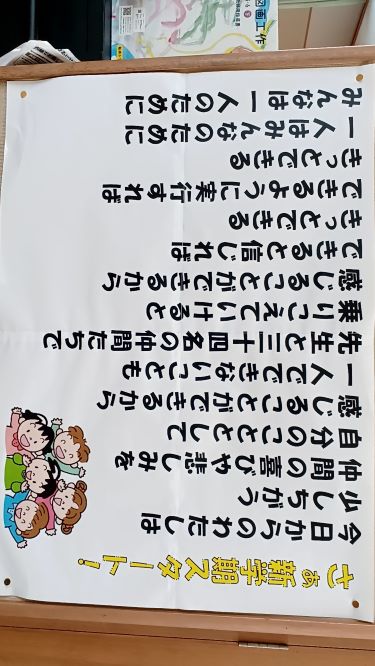 さぁ 新学期スタート!
今日からのわたしは
少しちがう
仲間の喜びや悲しみを
自分のこととして
感じることができるから
一人でできないことも
先生と三十四名の仲間たちで
乗りこえていけると
感じることができるから
できると信じれば
きっとできる
できるように実行すれば
きっとできる
一人はみんなのために
みんなは一人のために
図画工作